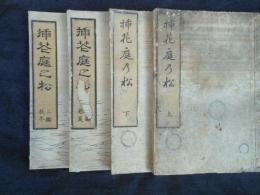 挿花庭乃松
上
挿花庭乃松
下
挿花庭之松
挿花庭之松
二編